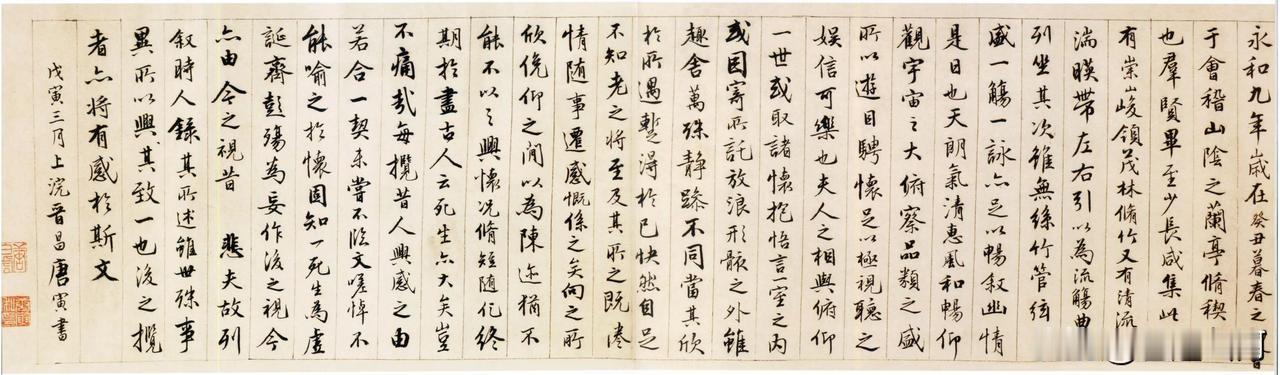 永和九年歲在癸丑暮春之
于會稽山陰之蘭亭脩稧
也羣賢畢至少長咸集此
有崇山峻領茂林脩竹又有清流
湍暎帶左右引以為流觴曲
列坐其次雖無絲竹管弦
盛一觴一詠亦足以暢敘幽情
是日也天朗氣清惠風和暢仰
觀宇宙之大俯察品類之盛
所以遊目騁懷足以極視聽之
娛信可樂也夫人之相與俯仰
一世或取諸懷抱悟言一室之內
或因寄所託放浪形骸之外雖
趣舍萬殊靜躁不同當其欣
於所遇蹔得於己快然自足
不知老之將至及其所之既惓
情隨事遷感慨係之矣向之所
欣俛仰之閒以為陳迹猶不
能不以之興懷況脩短隨化終
期於盡古人云死生亦大矣豈
不痛哉每攬昔人興感之由
若合一契未嘗不臨文嗟悼不
能喻之於懷固知一死生為虛
誕齊彭殤為妄作後之視今
亦由今之視昔 悲夫故列
敘時人錄其所述雖世殊事
異所以興其致一也後之攬
者亦將有感於斯文
戊寅三月上浣晉昌唐寅書